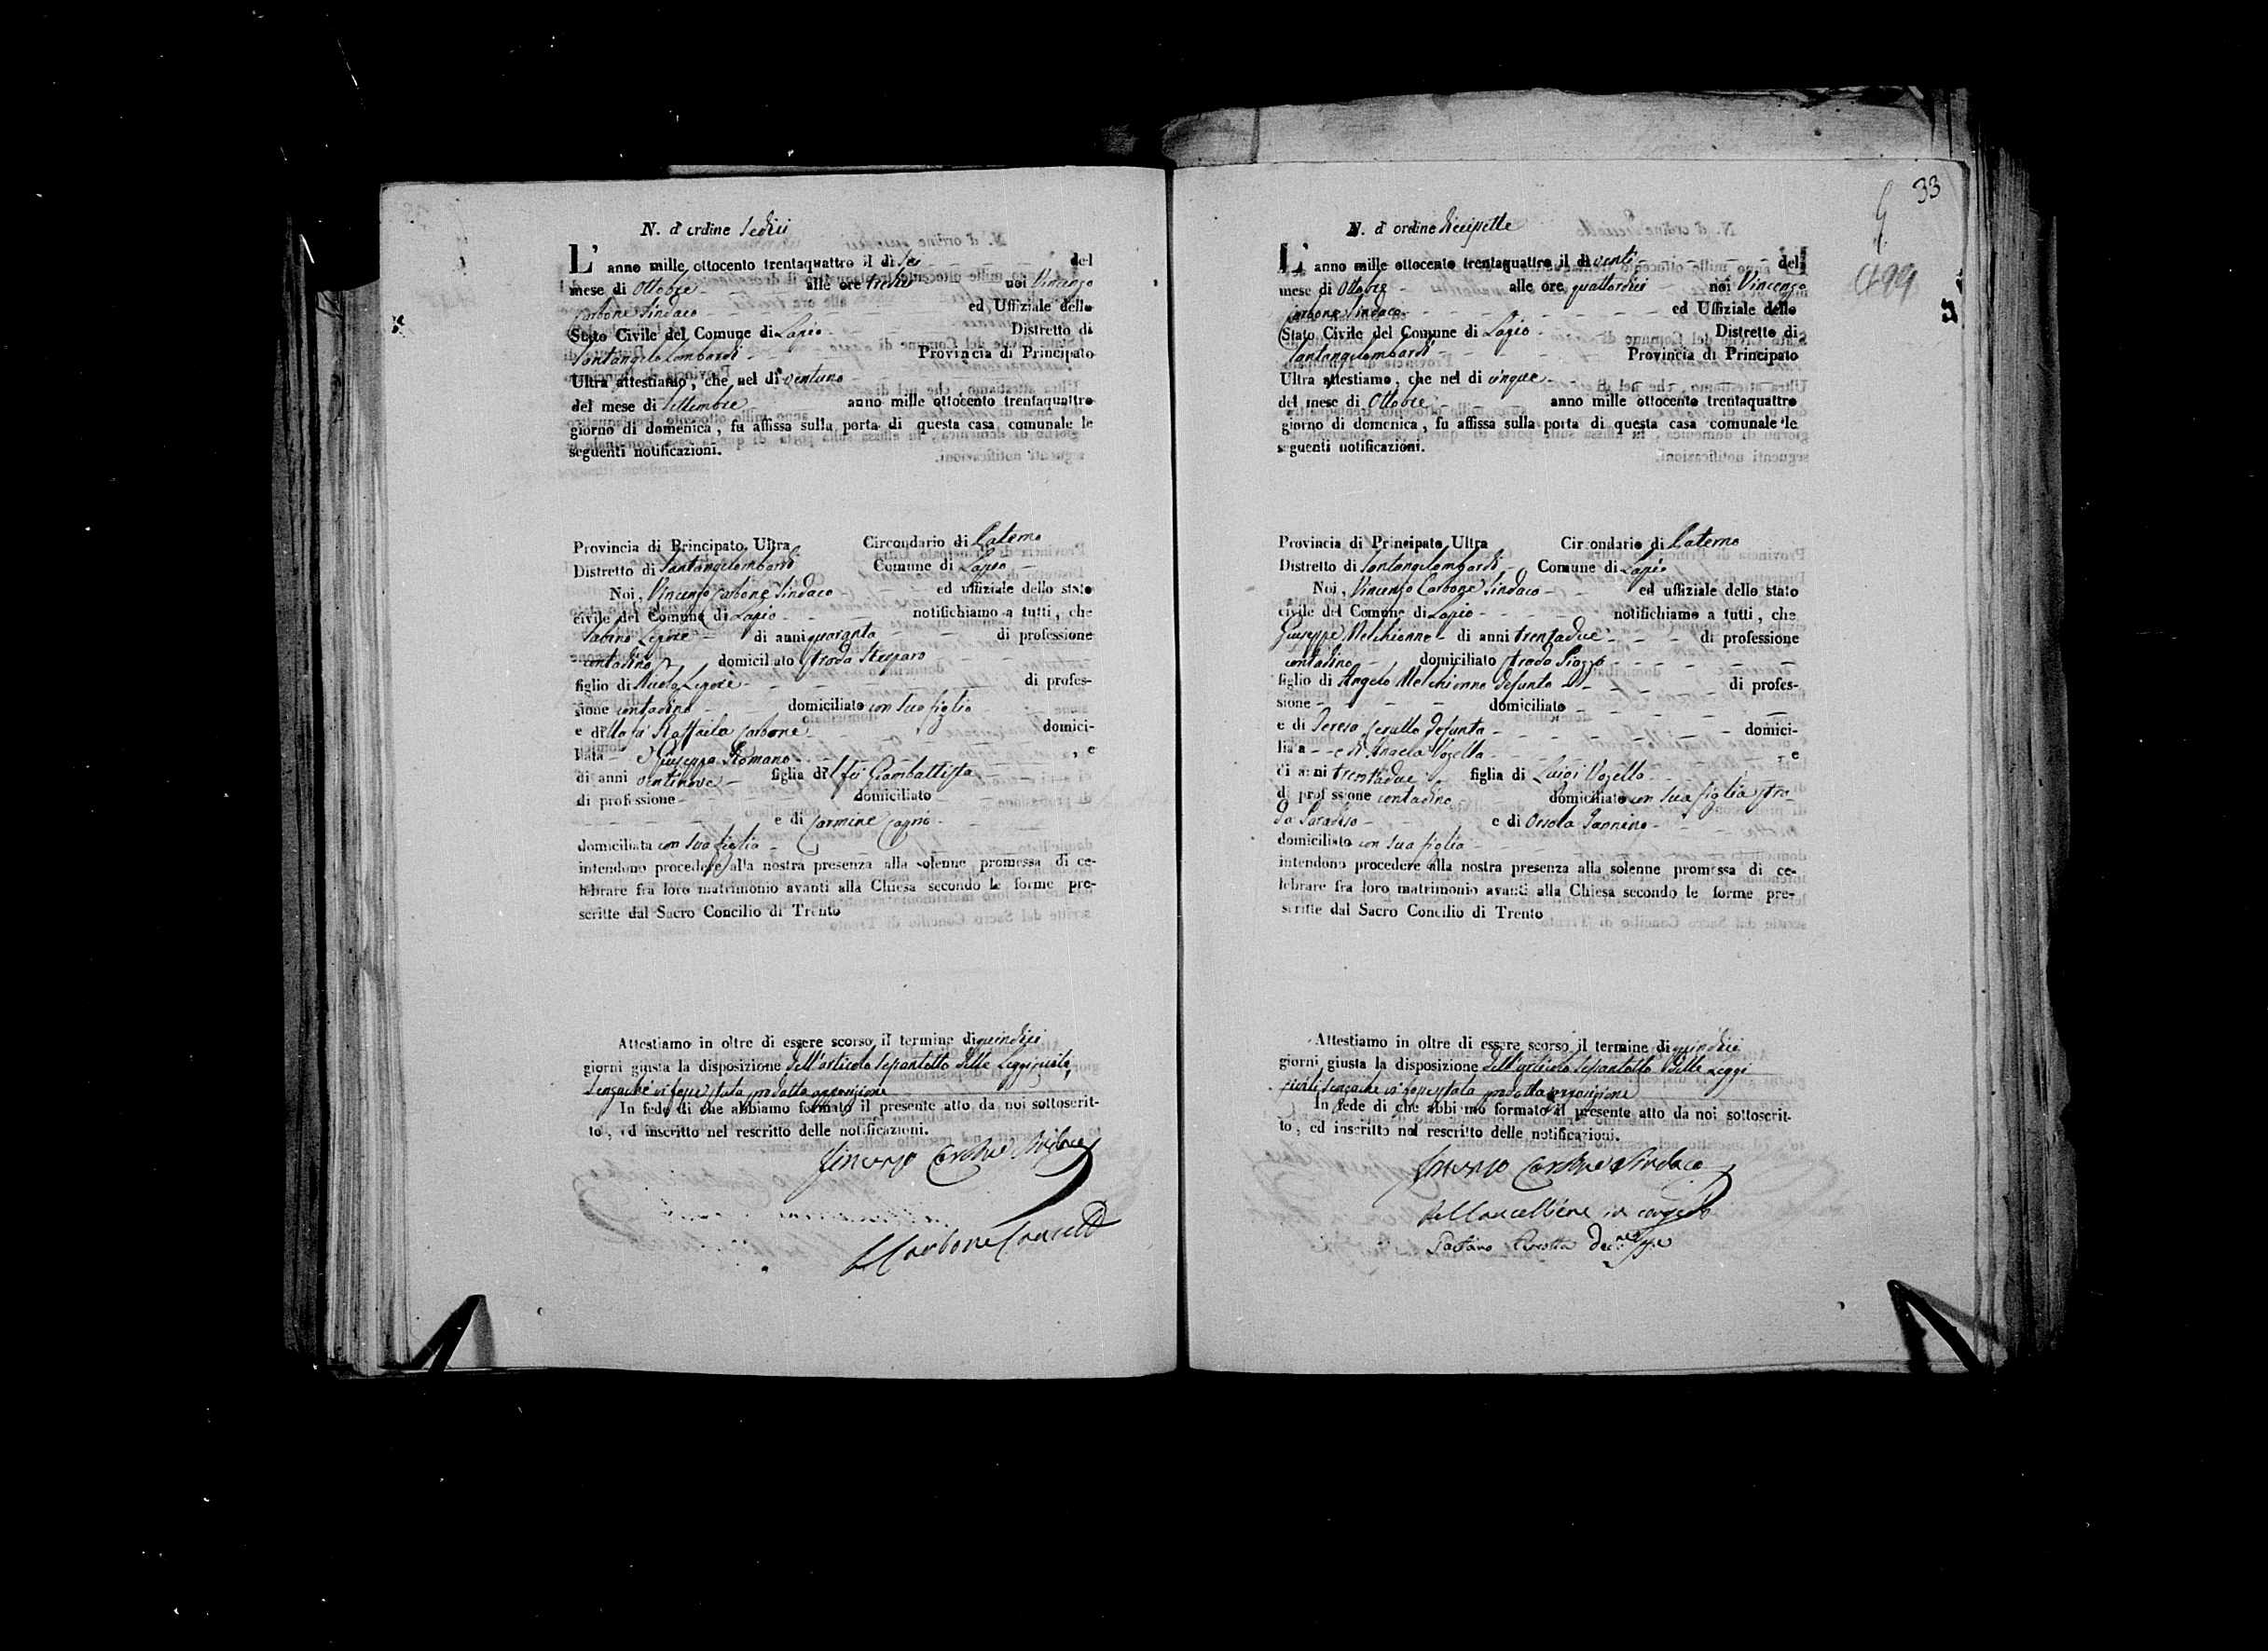 N. d'ordine Sedici
L'anno mille ottocento trentaquattro il dì Sei del
mese di Ottobre alle ore tredici noi Vincenzo
Carbone Sindaco ed Uffiziale dello
Stato Civile del Comune di Lapio Distretto di
Santangelo Lombardi Provincia di Principato
Ultra attestiamo, che nel dì ventuno
del mese di Settembre anno mille ottocento trentaquattro
giorno di domenica, fu affissa sulla porta di questa casa comunale le
seguenti notificazioni.
Provincia di Principato Ultra Circondario di Paterno
Distretto di Santangelombardi Comune di Lapio
Noi, Vincenzo Carbone Sindaco ed uffiziale dello stato
civile del Comune di Lapio notifichiamo a tutti, che
Sabino Lepore di anni quaranta di professione
contadino domiciliato strada
figlio di Nicola Lepore di profes-
sione contadino domiciliato con suo figlio
e di Raffaela Carbone domici-
liata e Giuseppa Romano , e
di anni ventinove figlia di fu Giambattista
di professione domiciliato
e di Carmine
domiciliata con sua figlia
intendono procedere alla nostra presenza alla solenne promessa di ce-
lebrare fra loro matrimonio avanti alla Chiesa secondo le forme pre-
scritte dal Sacro Concilio di Trento
Attestiamo in oltre di essere scorso il termine di quindici
giorni giusta la disposizione dell'articolo sepantotto delle Leggi civili
senzache vi fosse stata prodotta opposizione
In fede di che abbiamo formato il presente atto da noi sottoscrit-
to, ed inscritto nel rescritto delle notificazioni.
Vincenzo Carbone Sindaco
Carbone Cancell
33
499
N. d'ordine diciesette
L'anno mille ottocento trentaquattro il dì venti del
mese di Ottobre alle ore quattordici noi Vincenzo
Carbone Sindaco ed Uffiziale dello
Stato Civile del Comune di Lapio Distretto di
Santangelombardi Provincia di Principato
Ultra attestiamo, che nel dì cinque
del mese di Ottobre anno mille ottocento trentaquattro
giorno di domenica, fu affissa sulla porta di questa casa comunale le
seguenti notificazioni.
Provincia di Principato Ultra Circondario di Paterno
Distretto di Santangelombardi Comune di Lapio
Noi, Vincenzo Carbone Sindaco ed uffiziale dello stato
civile del Comune di Lapio notifichiamo a tutti, che
Giuseppe Melchionne di anni trentadue di professione
contadino domiciliato strada Piazza
figlio di Angelo Melchionno defunto di profes-
sione domiciliato
e di Teresa Cerullo defunta domici-
liata e di Angela Vozella , e
di anni trentadue figlia di Luigi Vozello
di professione contadino domiciliato con sua figlia stra-
da Paradiso e di Orsola Iannino
domiciliato con sua figlia
intendono procedere alla nostra presenza alla solenne promessa di ce-
lebrare fra loro matrimonio avanti alla Chiesa secondo le forme pre-
scritte dal Sacro Concilio di Trento
Attestiamo in oltre di essere scorso il termine di quindici
giorni giusta la disposizione dell'articolo sepantotto delle Leggi
civili senzache vi fosse stata prodotta opposizione
In fede di che abbiamo formato il presente atto da noi sottoscrit-
to, ed inscritto nel rescritto delle notificazioni.
Vincenzo Carbone Sindaco
Pel Cancelliere in congedo
Gaetano